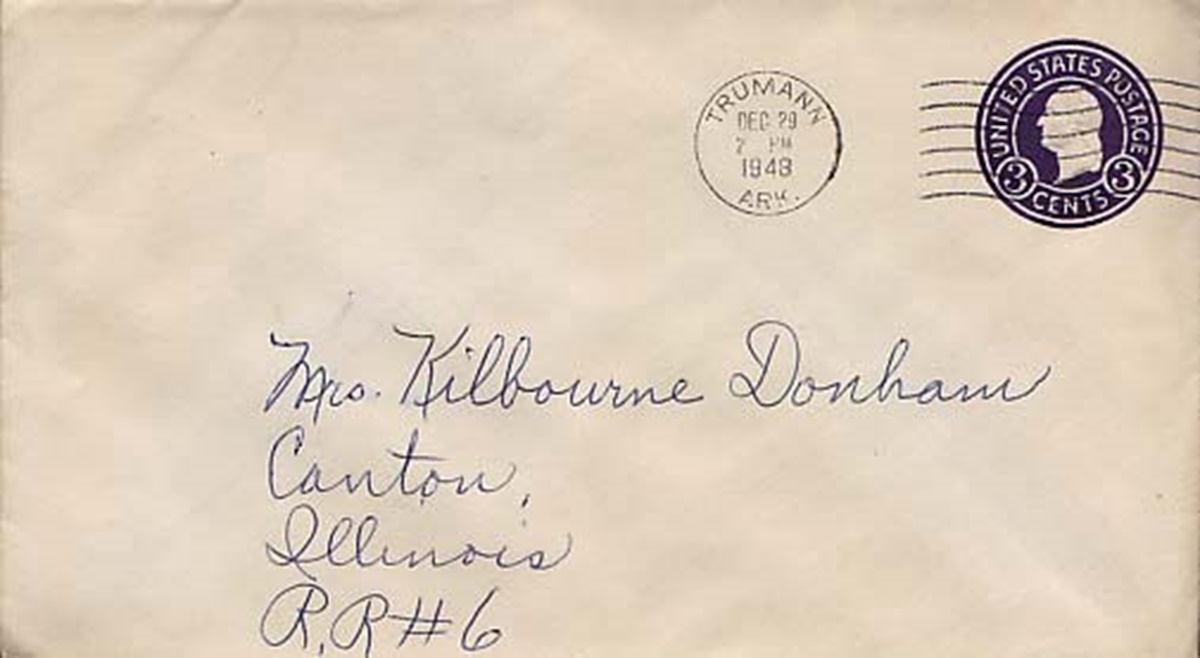 TRUMANN
DEC 29
2 PM
1948
ARK.
UNITED STATES POSTAGE
3 CENTS 3
Mrs. Kilbourne Donham
Canton,
Illinois
R.R#6